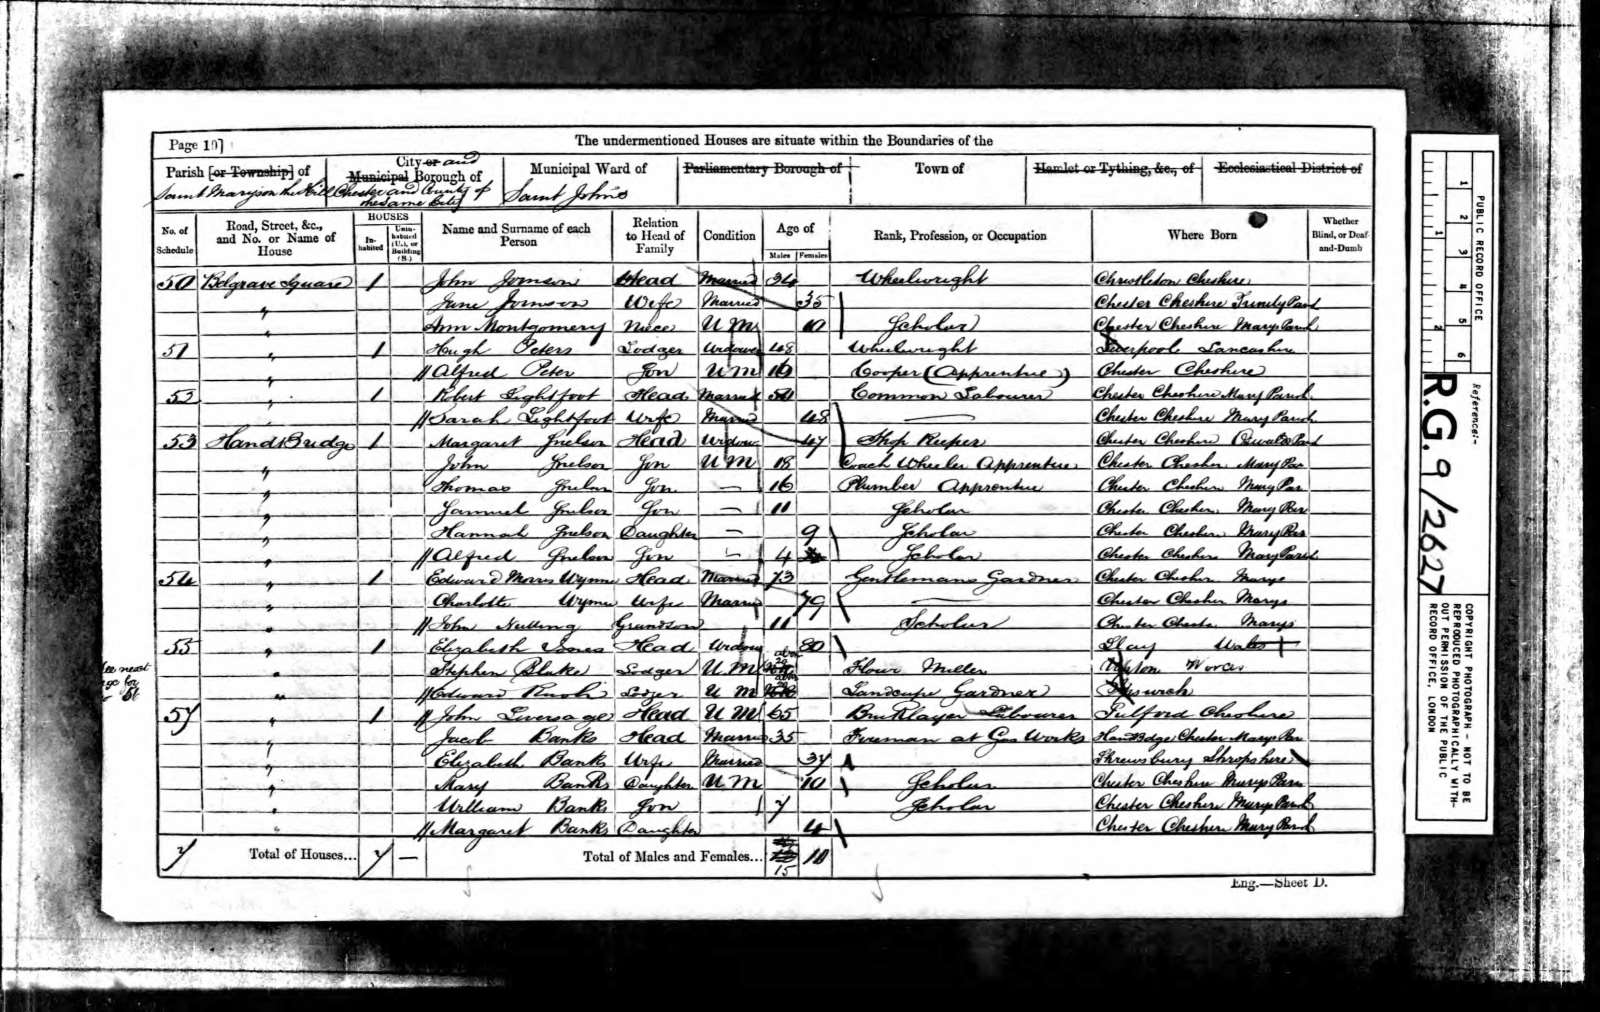 Page 19]
The undermentioned Houses are situate within the Boundaries of the
Parish [or Township] of
City or and Municipal Borough of
Municipal Ward of
Parliamentary Borough of
Town of
Hamlet or Tything, &c., of
Ecclesiastical District of
Saint Mary on the Hill
Chester and County of the same City
Saint John's
No. of Schedule
Road, Street, &c., and No. or Name of House
HOUSES
Inhabited
Uninhabited (U.), or Building (B.)
Name and Surname of each Person
Relation to Head of Family
Condition
Age of
Males
Females
Rank, Profession, or Occupation
Where Born
Whether Blind, or Deaf-and-Dumb
50 Belgrave Square 1 John Jomson Head Married 34 Wheelwright Christleton Cheshire
" Jane Jomson Wife Married 35 Chester Cheshire Trinity Parish
" Ann Montgomery Niece U M 10 Scholar Chester Cheshire Marys Parish
51 " 1 Hugh Peters Lodger Widower 48 Wheelwright Liverpool Lancashire
" Alfred Peter Son U M 16 Cooper (Apprentice) Chester Cheshire
52 " 1 Robert Lightfoot Head Married 50 Common Labourer Chester Cheshire Mary Parish
" Sarah Lightfoot Wife Married 48 — Chester Cheshire Mary Parish
53 Hand Bridge 1 Margaret Snelson Head Widow 47 Shop Keeper Chester Cheshire Oswald Par
" John Snelson Son U M 18 Coach Wheeler Apprentice Chester Cheshire Mary Par
" Thomas Snelson Son — 16 Plumber Apprentice Chester Cheshire Mary Par
" Samuel Snelson Son — 11 Scholar Chester Cheshire Mary Par
" Hannah Snelson Daughter — 9 Scholar Chester Cheshire Mary Par
" Alfred Snelson Son — 4 Scholar Chester Cheshire Mary Parish
54 " 1 Edward Morris Wynne Head Married 73 Gentlemans Gardner Chester Cheshire Marys
" Charlotte Wynne Wife Married 79 — Chester Cheshire Marys
" John Nutting Grandson 11 Scholar Chester Cheshire Marys
55 " 1 Elizabeth Jones Head Widow 80 Wales
" Stephen Blake Lodger U M 20 Flour Miller Upton Worcs
" Edward Lodger U M 20 Landscape Gardner Ipswich
57 " 1 John Liversage Head U M 65 Bricklayer Labourer Pulford Cheshire
" Jacob Banks Head Married 35 Fireman at Gas Works Handbridge Chester Marys Par
" Elizabeth Banks Wife Married 37 Shrewsbury Shropshire
" Mary Banks Daughter U M 10 Scholar Chester Cheshire Marys Parish
" William Banks Son 7 Scholar Chester Cheshire Mary Parish
" Margaret Banks Daughter 4 Chester Cheshire Mary Parish
see next
page for
No 56
7 Total of Houses... 7 — Total of Males and Females... 15 10
Eng.—Sheet D.
PUBLIC RECORD OFFICE
1 2 3 4 5 6
1 2
Reference:-
R.G. 9/2627
COPYRIGHT PHOTOGRAPH - NOT TO BE REPRODUCED PHOTOGRAPHICALLY WITHOUT PERMISSION OF THE PUBLIC RECORD OFFICE, LONDON